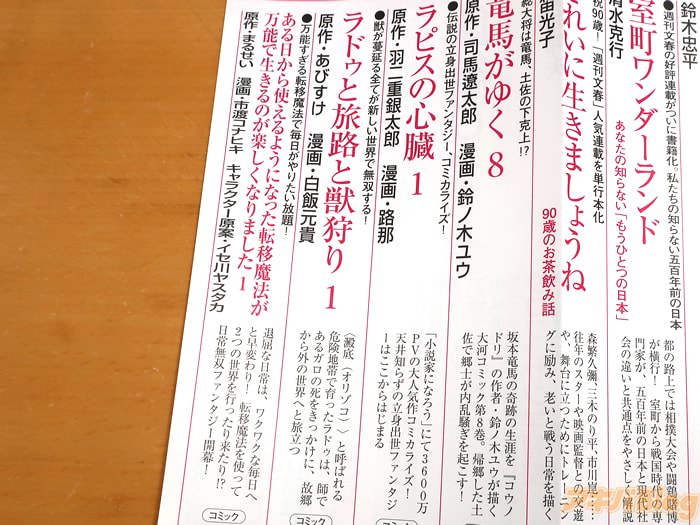 鈴木忠平
●週刊文春の好評連載がついに書籍化。私たちの知らない五百年前の日本
室町ワンダーランド
あなたの知らない「もうひとつの日本」
清水克行
都の路上では相撲大会や闘鶏賭博
が横行! 室町から戦国時代の専
門家が、五百年前の日本と現代社
会の違いと共通点をやさしく解説
祝90歳!「週刊文春」人気連載を単行本化
れいに生きましょうね
90歳のお茶飲み話
笛光子
森繁久彌、三木のり平、市川崑…
往年のスターや映画監督との交遊
や、舞台に立つためにトレーニン
グに励み、老いと戦う日常を描く
総大将は竜馬、土佐の下克上!?
竜馬がゆく 8
原作・司馬遼太郎 漫画・鈴ノ木ユウ
坂本竜馬の奇跡の生涯を『コウノ
ドリ』の作者・鈴ノ木ユウが描く
大河コミック第8巻。帰郷した土
佐で郷士が内乱騒ぎを起こす!
●伝説の立身出世ファンタジー、コミカライズ!
ラピスの心臓 1
原作・羽二重銀太郎 漫画・路那
「小説家になろう」にて3600万
PVの大人気作コミカライズ!
天井知らずの立身出世ファンタジ
ーはここからはじまる
コミック
●獣が蔓延る全てが新しい世界で無双する!
ラドゥと旅路と獣狩り 1
原作・あびすけ 漫画・白飯元貴
〈澱底(オリゾコ)〉と呼ばれる
危険地帯で育ったラドゥは、師で
あるガロの死をきっかけに、故郷
から外の世界へと旅立つ
コミック
●万能すぎる転移魔法で毎日がやりたい放題!
ある日から使えるようになった転移魔法が
万能で生きるのが楽しくなりました 1
原作・まるせい 漫画・市渡コナヒキ キャラクター原案・イセ川ヤスタカ
退屈な日常は、ワクワクな毎日へ
と早変わり! 転移魔法を使って
2つの世界を行ったり来たり!?
日常無双ファンタジー開幕!
コミック